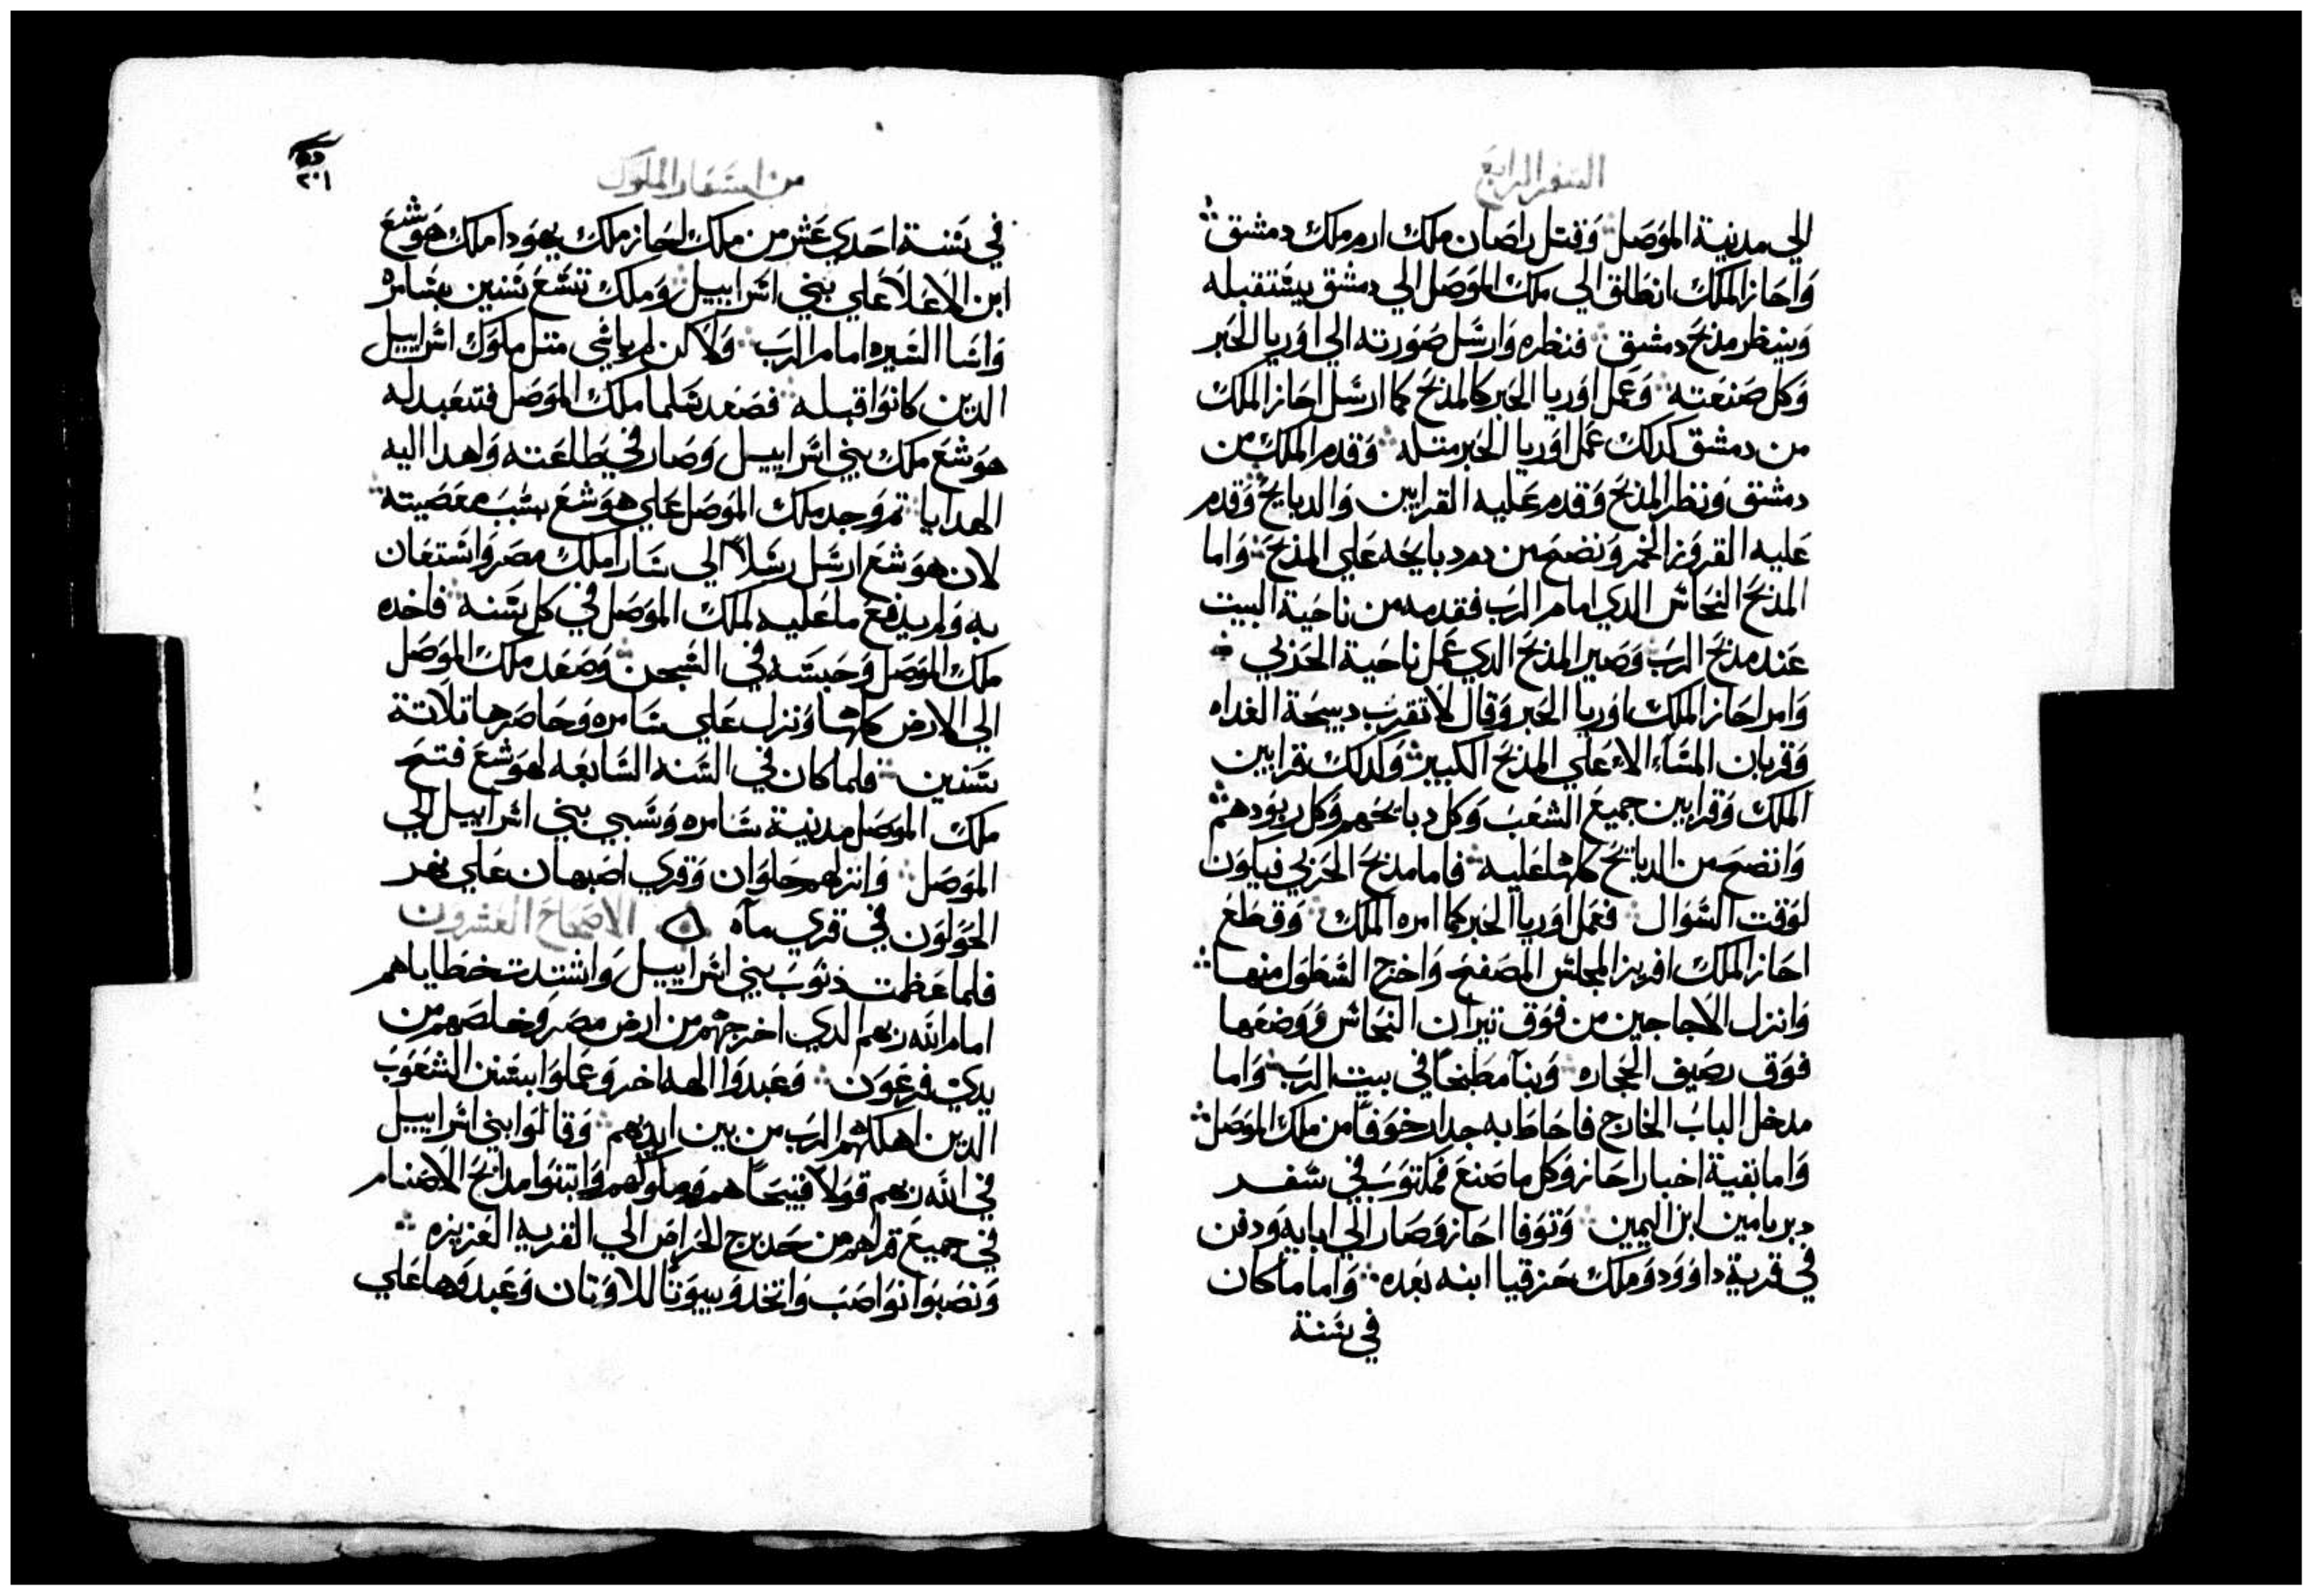 السفر الرابع
الي مدينة الموصل وقتل راصان ملك ارم ملك دمشق
واحاز الملك انطلق الي ملك الموصل الي دمشق يستقبله
وينظر مذبح دمشق فنظره وارسل صورته الي اوريا الحبر
وكل صنعته وعمل اوريا الحبر كالمذبح كما ارسل احاز الملك
من دمشق كدلك عمل اوريا الحبر متله وقدم الملك من
دمشق ونظر المذبح وقدم عليه القرابين والدبايح وقدم
عليه القروز الخمر ونضح من دم دبايحه علي المذبح واما
المذبح النحاس الدي امام الرب فقدمه من ناحية البيت
عند مذبح الرب وصير المذبح الدي عمل ناحية الحزبي
وامر احاز الملك اوريا الحبر وقال لا تقرب دبيحة الغداه
وقربان المساء الا علي المذبح الكبير وكدلك قرابين
الملك وقرابين جميع الشعب وكل دبايحهم وكل ربودهم
وانضح من الدبايح كلها عليه فاما مذبح الحزبي فيكون
لوقت السوال فعمل اوريا الحبر كما امره الملك وقطع
احاز الملك افريز المجلس المصفح واخرج السطول منها
وانزل الاجاجين من فوق تيران النحاس ووضعها
فوق رصيف الحجاره وبنآ مطبخاً في بيت الرب واما
مدخل الباب الخارج فاحاط به جدار خوفاً من ملك الموصل
واما بقية اخبار احاز وكل ما صنع فمكتوب في سفر
دبريامين ابن اليمين وتوفا احاز وصار الي ابايه ودفن
في قرية داوود وملك حزقيا ابنه بعده واما ما كان
في سنة
من اسفار الملوك
٢٠١
في سنة احدي عشر من ملك احاز ملك يهودا ملك هوشع
ابن الاعلا علي بني اسراييل وملك تسع سنين بسامره
واسا السيره امام الرب ولاكن لم ياسي متل ملوك اسراييل
الدين كانوا قبله فصعد شلما ملك الموصل فتعبد له
هوشع ملك بني اسراييل وصار في طاعته واهدا اليه
الهدايا تم وجد ملك الموصل علي هوشع بسبب معصيته
لان هوشع ارسل رسلاً الي سارا ملك مصر واستعان
به ولم يدفع ما عليه لملك الموصل في كل سنه فاخده
ملك الموصل وحبسه في السجن وصعد ملك الموصل
الي الارض كلها ونزل علي سامره وحاصرها تلاتة
سنين فلما كان في السنه السابعه لهوشع فتح
ملك الموصل مدينة سامره وسبي بني اسراييل الي
الموصل وانزلهم حلوان وقري اصبهان علي نهر
الحولون في قري مآه الاصحاح العشرون
فلما عظمت ذنوب بني اسراييل واشتدت خطاياهم
امام الله ربهم الدي اخرجهم من ارض مصر وخلصهم من
يدي فرعون وعبدوا الهه اخر وعملوا بسنن الشعوب
الدين اهلكهم الرب من بين ايديهم وقالوا بني اسراييل
في الله ربهم قولاً قبيحاً هم وملوكهم وابتنوا مدابح الاصنام
في جميع قراهم من حد برج الحراس الي القريه العزيزه
ونصبوا نواصب واتخدو بيوتاً للاوتان وعبدوها علي